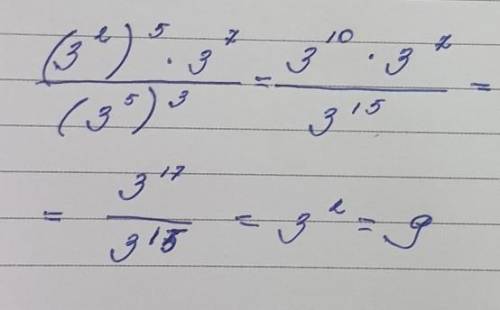 (3²)⁵ · 3⁷ / (3⁵)³ = 3¹⁰ · 3⁷ / 3¹⁵ =
= 3¹⁷ / 3¹⁵ = 3² = 9